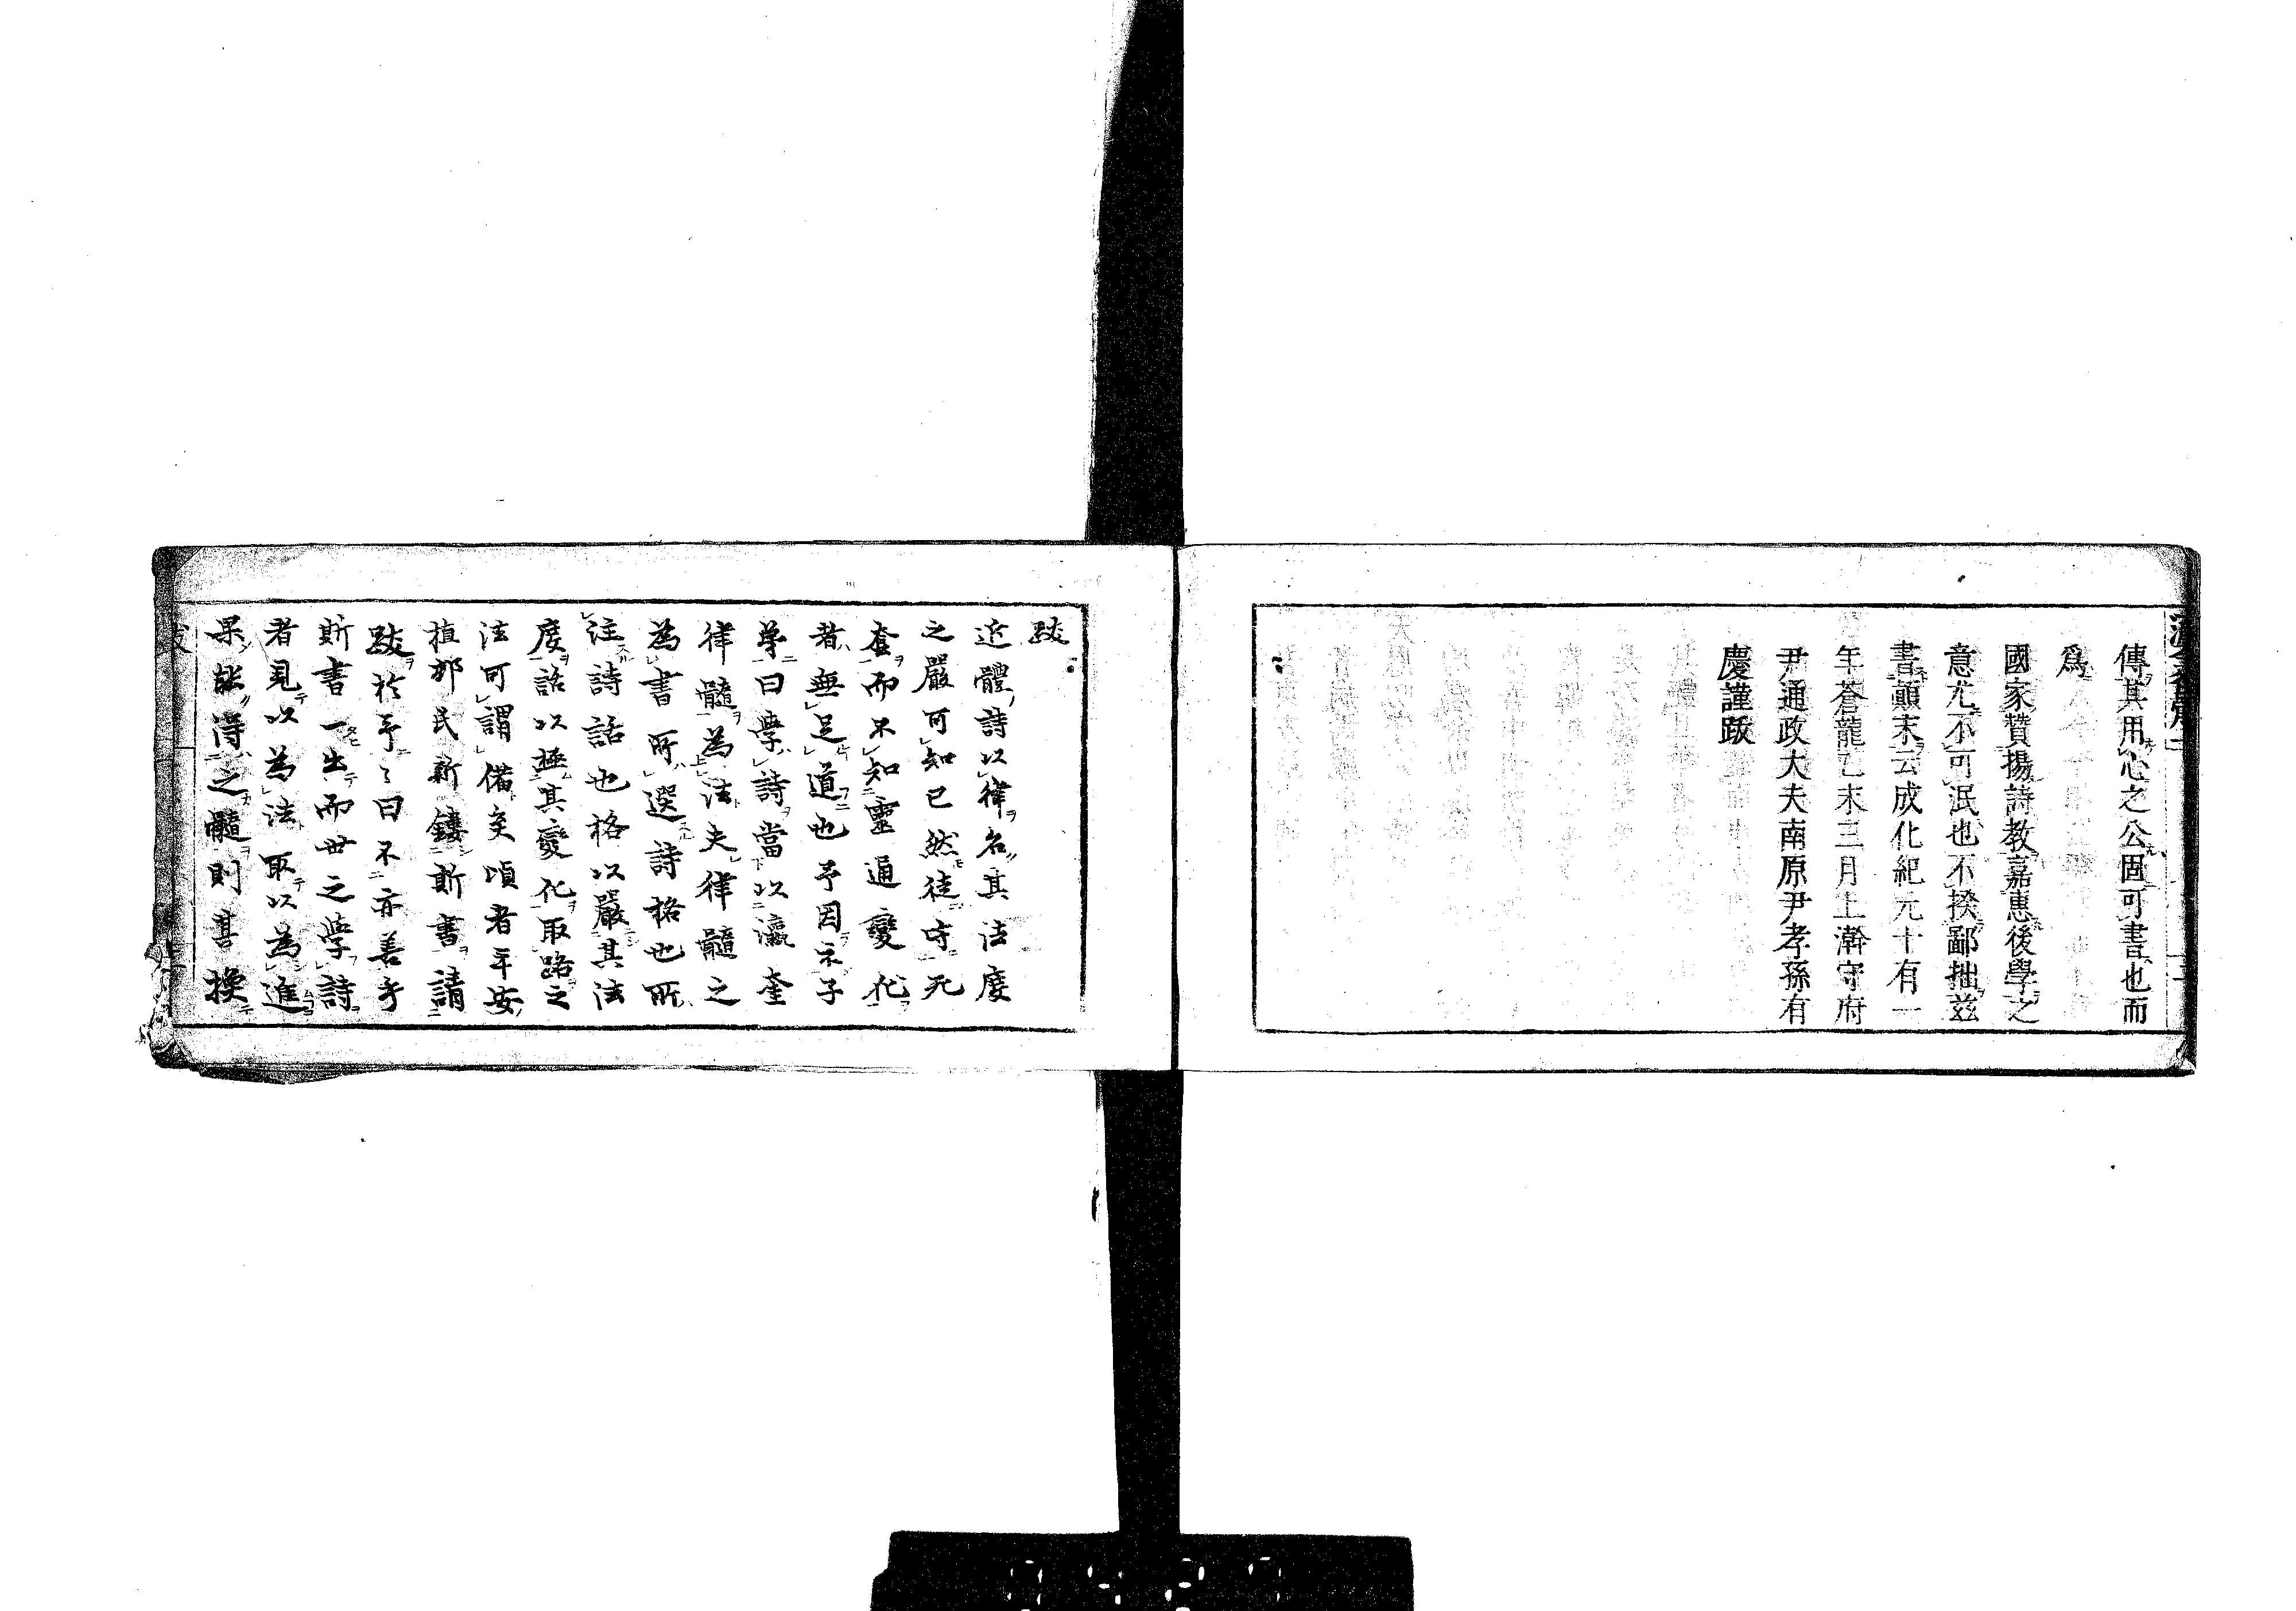 傳其用心之公固可書也而
爲
國家贊揚詩教嘉惠後學之
意尤不可泯也不揆鄙拙玆
書顚末云成化紀元十有一
年蒼龍乙未三月上澣守府
尹通政大夫南原尹孝孫有
慶謹跋
跋
近體詩以律名其法度
之嚴可知已然徒守死
套而不知靈通變化
者無足道也予因示子
弟曰學詩當以瀛奎
律髓為法夫律髓之
為書所選詩格也所
注詩話也格以嚴其法
度話以極其變化取路之
法可謂備矣頃者平安
植邨氏新鏤斯書請
跋於予〻曰不亦善乎
斯書一出而世之學詩
者見以為法取以為進
果能得之髓則其換